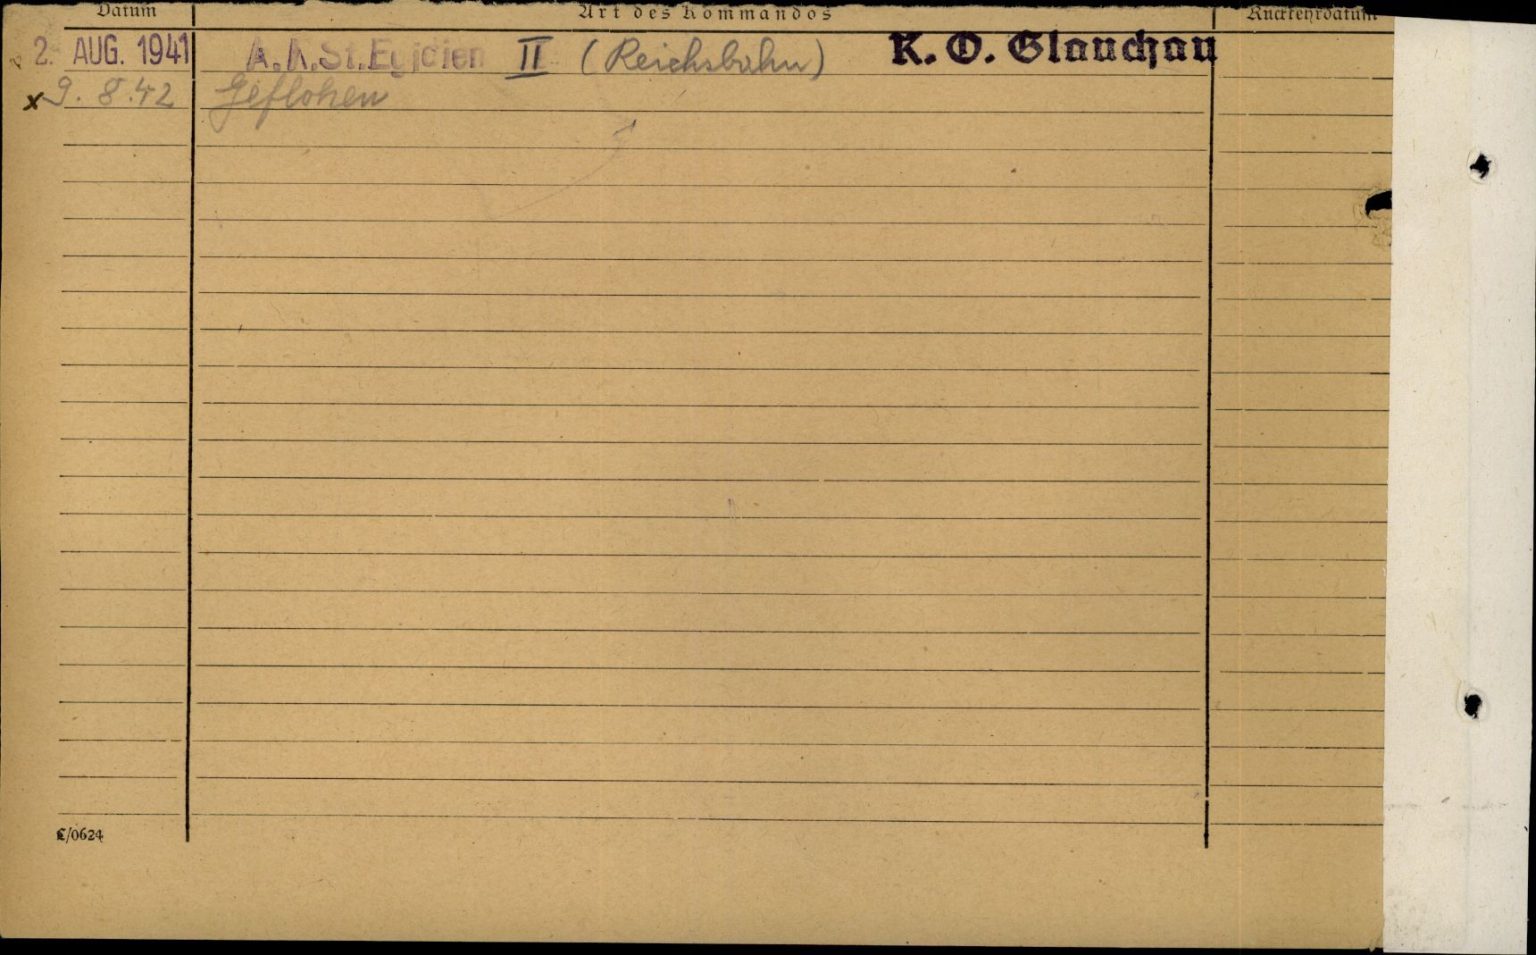 Datum Art des Kommandos Rückkehrdatum
2. AUG. 1941 A.K.St.Egidien II (Reichsbahn) K. O. Glauchau
x 9. 8. 42 Geflohen
C/0624